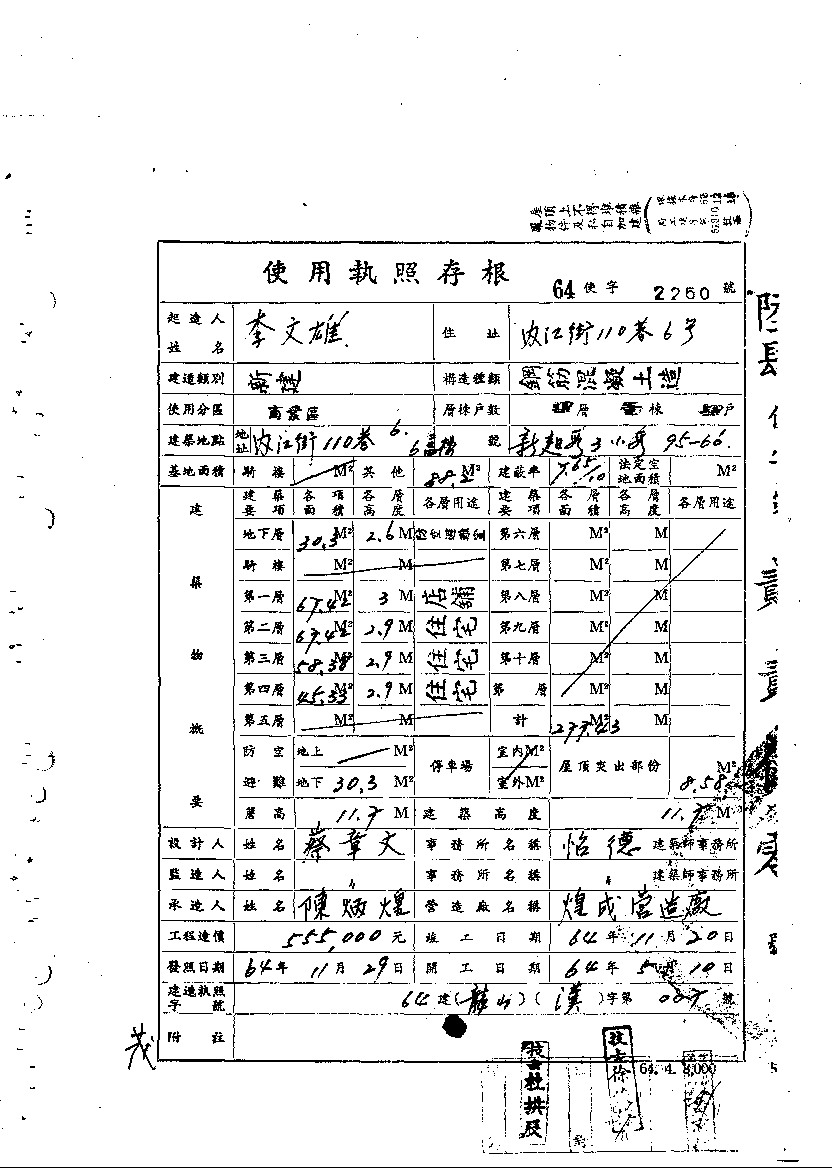 屋頂上不得堆積雜
物件及私自加建
使用執照存根 64使字 2250 號
起造人姓名 李文雄 住址 內江街110巷6号
建造類別 新建 構造種類 鋼筋混凝土造
使用分區 商業區 層棟戶數 層 棟 戶
建築地點 地址 內江街110巷 6. 號 新起段3小段 95-66.
基地面積 騎樓 M² 其他 88.2 M² 建蔽率 7.65/10 法定空地面積 M²
建築要項 各項面積 各層高度 各層用途 建築要項 各層面積 各層高度 各層用途
建築物概要
地下層 30.3 M² 2.6 M 第六層 M² M
騎樓 M² M 第七層 M² M
第一層 67.42 M² 3 M 店鋪 第八層 M² M
第二層 67.42 M² 2.9 M 住宅 第九層 M² M
第三層 58.38 M² 2.9 M 住宅 第十層 M² M
第四層 45.33 M² 2.9 M 住宅 第 層 M² M
第五層 M² M 計 277.43 M² M
防空 地上 M² 停車場 室內M² 屋頂突出部份 M²
避難 地下 30.3 M² 室外M² 8.58
簷高 11.7 M 建築高度 11.7 M
設計人 姓名 蔡章文 事務所名稱 怡德 建築師事務所
監造人 姓名 〃 事務所名稱 〃 建築師事務所
承造人 姓名 陳炳煌 營造廠名稱 煌成營造廠
工程造價 555,000 元 竣工日期 64年 11月 20日
發照日期 64年 11月 29日 開工日期 64年 5月 10日
建造執照字號 64建(龍山)(漢)字第 007 號
附註
茂
64. 4. 8,000